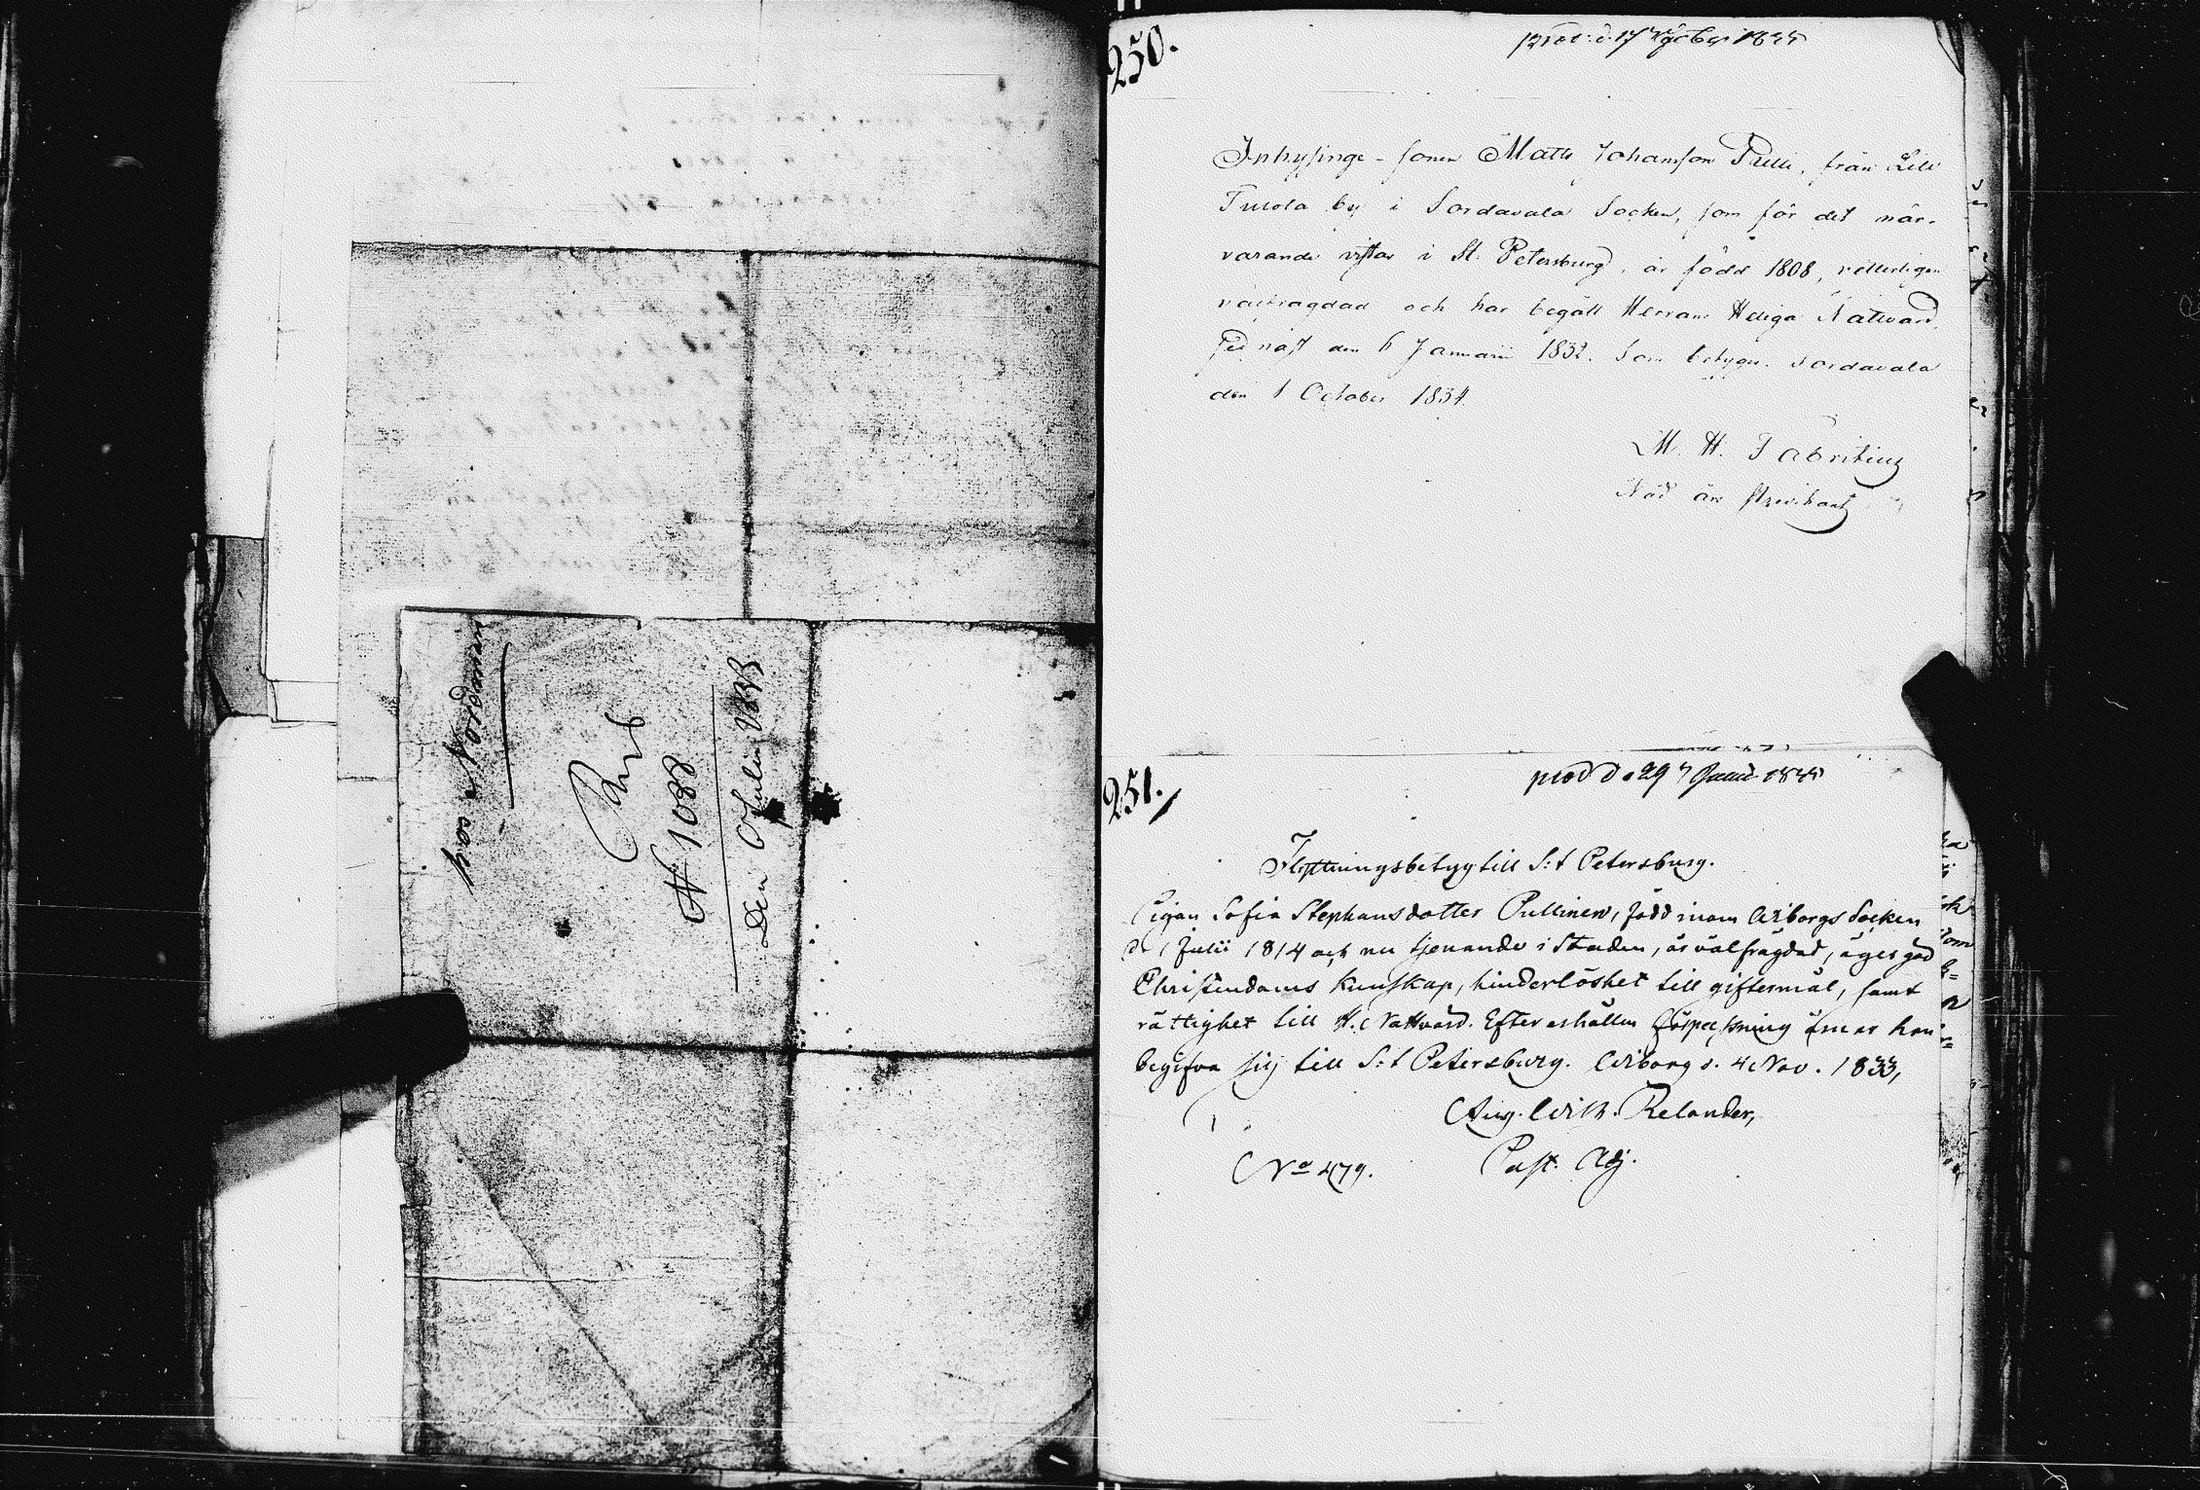 hos Nordman
N 1088
Den Julii 1833.
250.
Inhysinge-sonen Matts Johansson Pulli, från Lill
Tuiola by i Sordavala Socken, som för det när-
varande vistas i St. Petersburg, är född 1808, vetterligen
välfrägdad och har begått Herrans Heliga Nattvard
sednast den 6 Januarii 1832. Som betygar. Sordavala
den 1 October 1834.
M. H. Fabritius
Nåd års predikant
251.
prod d. 29 1835
Flyttningsbetyg till S:t Petersburg.
Pigan Sofia Stephansdotter Pullinen, född inom Wiborgs Socken
d. 1 Julii 1814 och nu tjenande i Staden, är välfrägdad, äger god
Christendoms kunskap, hinderlöshet till giftermål, samt
rättighet till H. Nattvard. Efter erhållen förpassning ämnar hon
begifva sig till S:t Petersburg. Wiborg d. 4 Nov. 1833,
Aug. Wilh. Relander,
Past. Adj.
No 479.